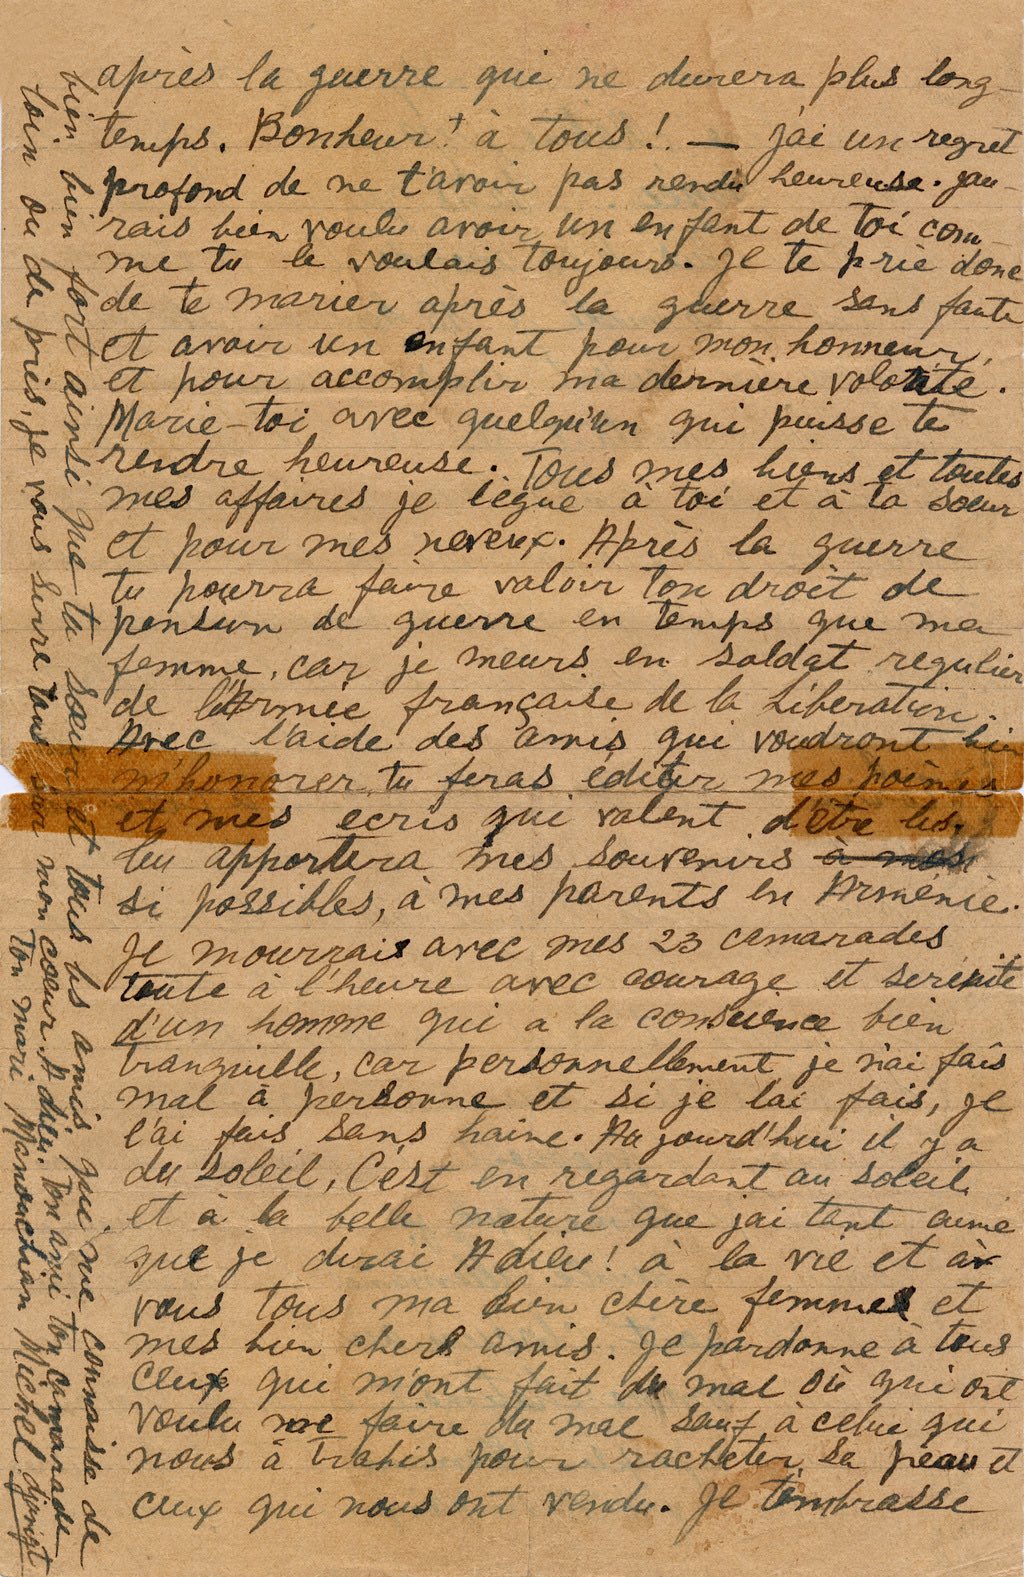 après la guerre qui ne durera plus long-
temps. Bonheur! à tous! — j'ai un regret
profond de ne t'avoir pas rendu heureuse. jau-
rais bien voulu avoir un enfant de toi com-
me tu le voulais toujours. Je te prie donc
de te marier après la guerre sans faute
et avoir un enfant pour mon honneur,
et pour accomplir ma dernière volonté.
Marie-toi avec quelqu'un qui puisse te
rendre heureuse. Tous mes biens et toutes
mes affaires je lègue à toi et à ta sœur
et pour mes neveux. Après la guerre
tu pourra faire valoir ton droit de
pension de guerre en temps que ma
femme, car je meurs en soldat regulier
de l'Armée française de la Libération.
Avec l'aide des amis qui voudront bien
m'honorer, tu feras éditer mes poèmes
et mes ecris qui valent d'être lus.
tu apportera mes souvenirs à mes
si possibles, à mes parents en Arménie.
Je mourrais avec mes 23 camarades
toute à l'heure avec courage et serénité
d'un homme qui a la conscience bien
tranquille, car personnellement je n'ai fais
mal à personne et si je lai fais, je
l'ai fais sans haine. Aujourd'hui il y a
du soleil, C'est en regardant au soleil
et à la belle nature que jai tant aimé
que je dirai Adieu! à la vie et à
vous tous ma bien chère femme et
mes bien chers amis. Je pardonne à tous
ceux qui m'ont fait du mal où qui ont
voulu me faire du mal sauf à celui qui
nous à trahis pour racheter sa peau et
ceux qui nous ont vendu. Je t'embrasse
bien bien fort ainsi que ta sœur et tous les amis qui me connaisse de
loin ou de près, je vous serre tous sur mon cœur. Adieu. Ton ami ton camarade
Ton mari Manouchian Michel djanigt